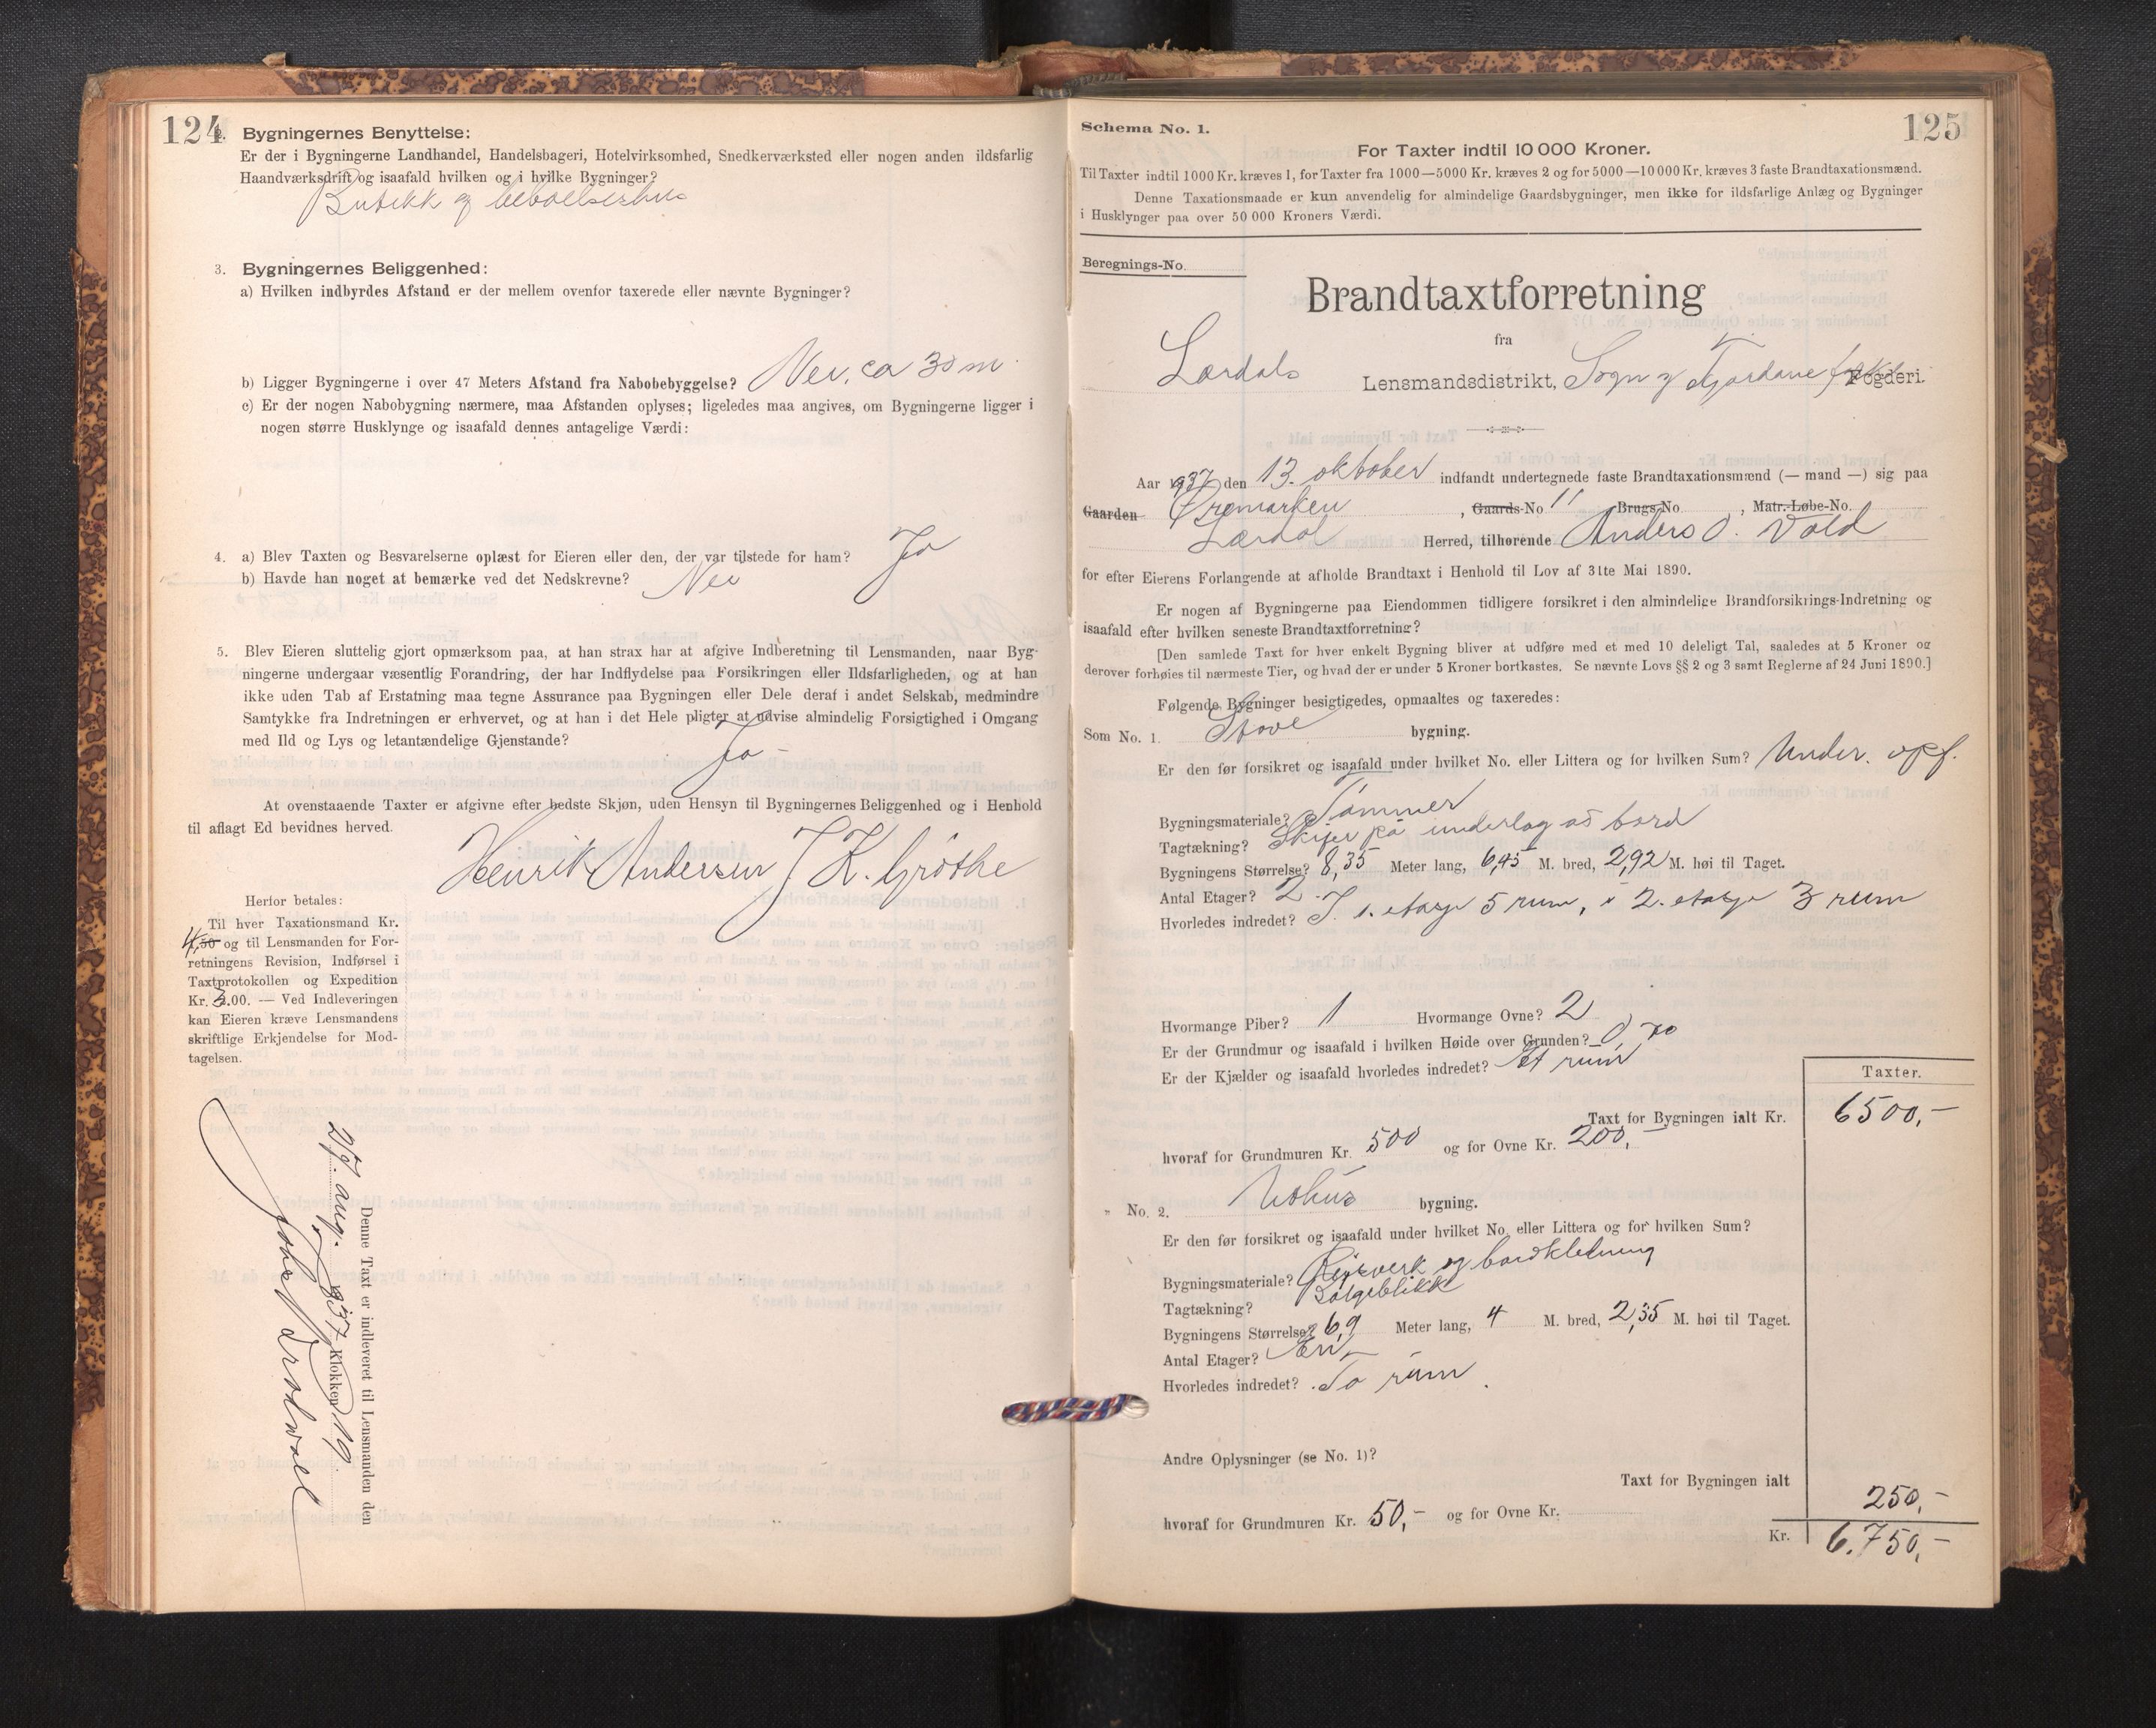 124
2. Bygningernes Benyttelse:
Er der i Bygningerne Landhandel, Handelsbageri, Hotelvirksomhed, Snedkerværksted eller nogen anden ildsfarlig
Haandværksdrift og isaafald hvilken og i hvilke Bygninger?
Butikk og beboelseshus
3. Bygningernes Beliggenhed:
a) Hvilken indbyrdes Afstand er der mellem ovenfor taxerede eller nævnte Bygninger?
b) Ligger Bygningerne i over 47 Meters Afstand fra Nabobebyggelse? Nei, ca 30 m.
c) Er der nogen Nabobygning nærmere, maa Afstanden oplyses; ligeledes maa angives, om Bygningerne ligger i
nogen større Husklynge og isaafald dennes antagelige Værdi:
4. a) Blev Taxten og Besvarelserne oplæst for Eieren eller den, der var tilstede for ham? Ja
b) Havde han noget at bemærke ved det Nedskrevne? Nei
5. Blev Eieren sluttelig gjort opmærksom paa, at han strax har at afgive Indberetning til Lensmanden, naar Byg-
ningerne undergaar væsentlig Forandring, der har Indflydelse paa Forsikringen eller Ildsfarligheden, og at han
ikke uden Tab af Erstatning maa tegne Assurance paa Bygningen eller Dele deraf i andet Selskab, medmindre
Samtykke fra Indretningen er erhvervet, og at han i det Hele pligter at udvise almindelig Forsigtighed i Omgang
med Ild og Lys og letantændelige Gjenstande? Ja -
At ovenstaaende Taxter er afgivne efter bedste Skjøn, uden Hensyn til Bygningernes Beliggenhed og i Henhold
til aflagt Ed bevidnes herved.
Henrik Andersen J K. Grøthe
Herfor betales:
Til hver Taxationsmand Kr.
4,50 og til Lensmanden for For-
retningens Revision, Indførsel i
Taxtprotokollen og Expedition
Kr. 3.00. — Ved Indleveringen
kan Eieren kræve Lensmandens
skriftlige Erkjendelse for Mod-
tagelsen.
Denne Taxt er indleveret til Lensmanden den
27. aug. 1937 Klokken 19.
125
Schema No. 1.
For Taxter indtil 10 000 Kroner.
Til Taxter indtil 1000 Kr. kræves 1, for Taxter fra 1000—5000 Kr. kræves 2 og for 5000—10 000 Kr. kræves 3 faste Brandtaxationsmænd.
Denne Taxationsmaade er kun anvendelig for almindelige Gaardsbygninger, men ikke for ildsfarlige Anlæg og Bygninger
i Husklynger paa over 50 000 Kroners Værdi.
Beregnings-No.
Brandtaxtforretning
fra
Lærdals Lensmandsdistrikt, Sogn og Fjordane fylke Fogderi.
Aar 1937 den 13. oktober indfandt undertegnede faste Brandtaxationsmænd (— mand —) sig paa
Gaarden Øremarken, Gaards-No 11 Brugs-No , Matr.-Løbe-No.
Lærdal Herred, tilhørende Anders O. Vold
for efter Eierens Forlangende at afholde Brandtaxt i Henhold til Lov af 31te Mai 1890.
Er nogen af Bygningerne paa Eiendommen tidligere forsikret i den almindelige Brandforsikrings-Indretning og
isaafald efter hvilken seneste Brandtaxtforretning?
[Den samlede Taxt for hver enkelt Bygning bliver at udføre med et med 10 deleligt Tal, saaledes at 5 Kroner og
derover forhøies til nærmeste Tier, og hvad der er under 5 Kroner bortkastes. Se nævnte Lovs §§ 2 og 3 samt Reglerne af 24 Juni 1890.]
Følgende Bygninger besigtigedes, opmaaltes og taxeredes:
Som No. 1. Stove bygning.
Er den før forsikret og isaafald under hvilket No. eller Littera og for hvilken Sum? Under. opf.
Bygningsmateriale? Tømmer
Tagtækning? Skifer på underlag av bord
Bygningens Størrelse? 8,35 Meter lang, 6,45 M. bred, 2,92 M. høi til Taget.
Antal Etager? 2
Hvorledes indredet? I 1. etasje 5 rum, i 2. etasje 3 rum
Hvormange Piber? 1 Hvormange Ovne? 2
Er der Grundmur og isaafald i hvilken Høide over Grunden? 0,70
Er der Kjælder og isaafald hvorledes indredet? Et rum
Taxter.
Taxt for Bygningen ialt Kr. 6500,-
hvoraf for Grundmuren Kr. 500 og for Ovne Kr. 200,-
" No. 2. Uthus bygning.
Er den før forsikret og isaafald under hvilket No. eller Littera og for hvilken Sum?
Bygningsmateriale? Reisverk og bordkledning
Tagtækning? Bølgeblikk
Bygningens Størrelse? 6,9 Meter lang, 4 M. bred, 2,35 M. høi til Taget.
Antal Etager? En
Hvorledes indredet? To rum.
Andre Oplysninger (se No. 1)?
Taxt for Bygningen ialt 250,-
hvoraf for Grundmuren Kr. 50,- og for Ovne Kr.
Kr. 6.750,-